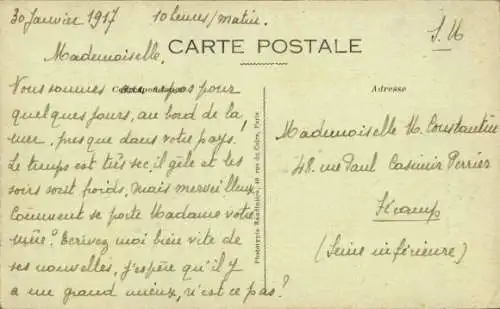 30 Janvier 1917 10 heures/matin.
S. M
Mademoiselle,
CARTE POSTALE
Correspondance
Adresse
Nous sommes au repos pour
quelques jours, au bord de la
mer, presque dans votre pays.
Le temps est très sec, il gèle et les
soirs sont froids, mais merveilleux.
Comment se porte Madame votre
mère? Ecrivez moi bien vite de
ses nouvelles, j'espère qu'il y
a un grand mieux, n'est ce pas?
Mademoiselle M. Constantin
48, rue Paul Casimir Perrier
Fécamp
(Seine inférieure)
Phototypie Baudinière, 40 rue du Caire, Paris